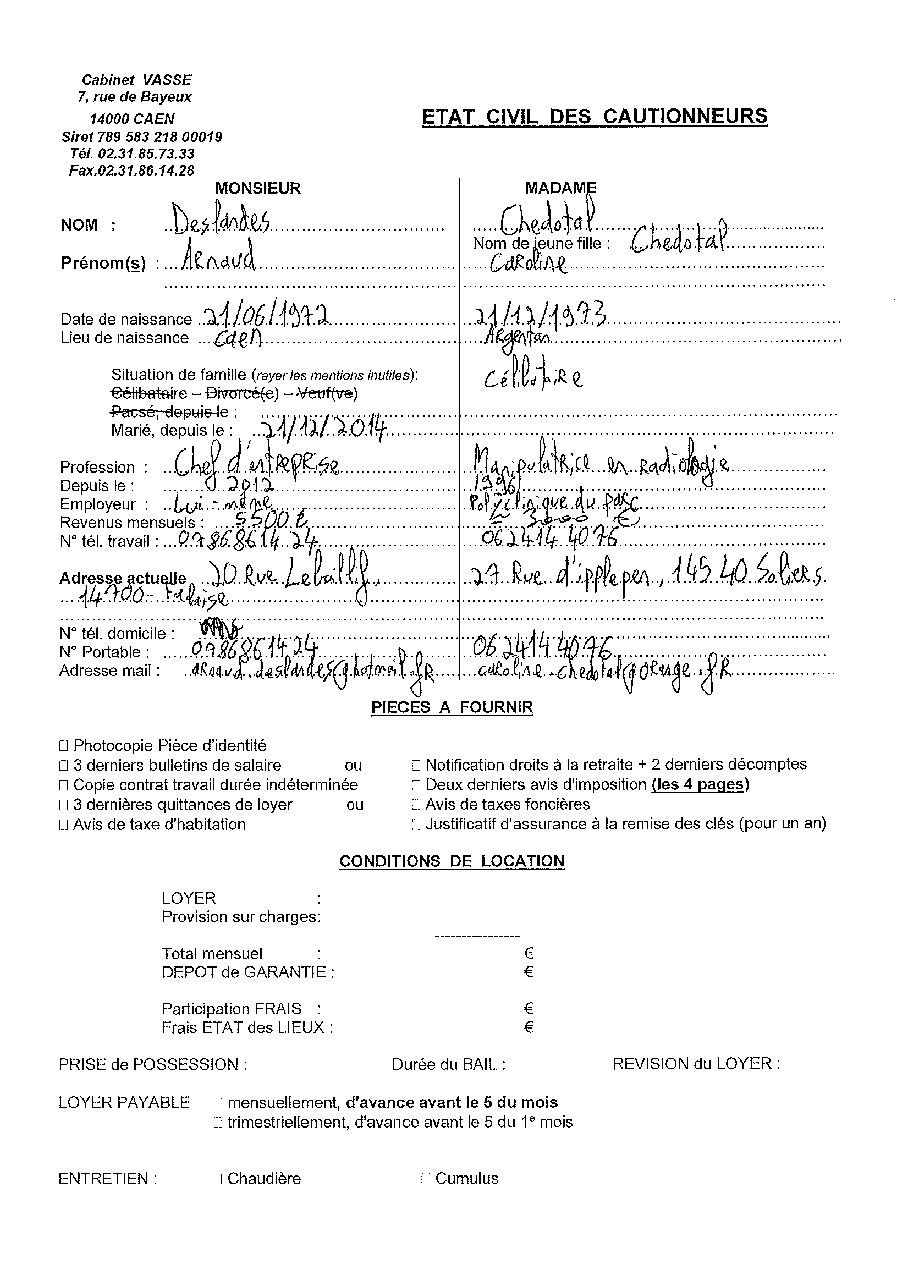 Cabinet VASSE
7, rue de Bayeux
14000 CAEN
Siret 789 583 218 00019
Tél. 02.31.85.73.33
Fax.02.31.86.14.28
ETAT CIVIL DES CAUTIONNEURS
MONSIEUR MADAME
NOM : Deslandes Chedotal
Nom de jeune fille : Chedotal
Prénom(s) : Arnaud Caroline
Date de naissance 21/06/1972 21/12/1973
Lieu de naissance Caen Argentan
Situation de famille (rayer les mentions inutiles): Célibataire
Célibataire – Divorcé(e) – Veuf(ve)
Pacsé, depuis le :
Marié, depuis le : 21/12/2014
Profession : Chef d'entreprise Manipulatrice en radiologie
Depuis le : 2012 1996
Employeur : Lui-même Polyclinique du parc
Revenus mensuels : 5500 € 3000 €
N° tél. travail : 0786861424 0624144076
Adresse actuelle 20 Rue 27 Rue d'ipplepen, 14540 Soliers
14700 - Falaise
N° tél. domicile :
N° Portable : 0786861424 0624144076
Adresse mail : arnaud.deslandes@hotmail.fr caroline-chedotal@orange.fr
PIECES A FOURNIR
Photocopie Pièce d'identité
3 derniers bulletins de salaire ou Notification droits à la retraite + 2 derniers décomptes
Copie contrat travail durée indéterminée Deux derniers avis d'imposition (les 4 pages)
3 dernières quittances de loyer ou Avis de taxes foncières
Avis de taxe d'habitation Justificatif d'assurance à la remise des clés (pour un an)
CONDITIONS DE LOCATION
LOYER :
Provision sur charges:
----------------
Total mensuel : €
DEPOT de GARANTIE : €
Participation FRAIS : €
Frais ETAT des LIEUX : €
PRISE de POSSESSION : Durée du BAIL : REVISION du LOYER :
LOYER PAYABLE mensuellement, d'avance avant le 5 du mois
trimestriellement, d'avance avant le 5 du 1° mois
ENTRETIEN : Chaudière Cumulus